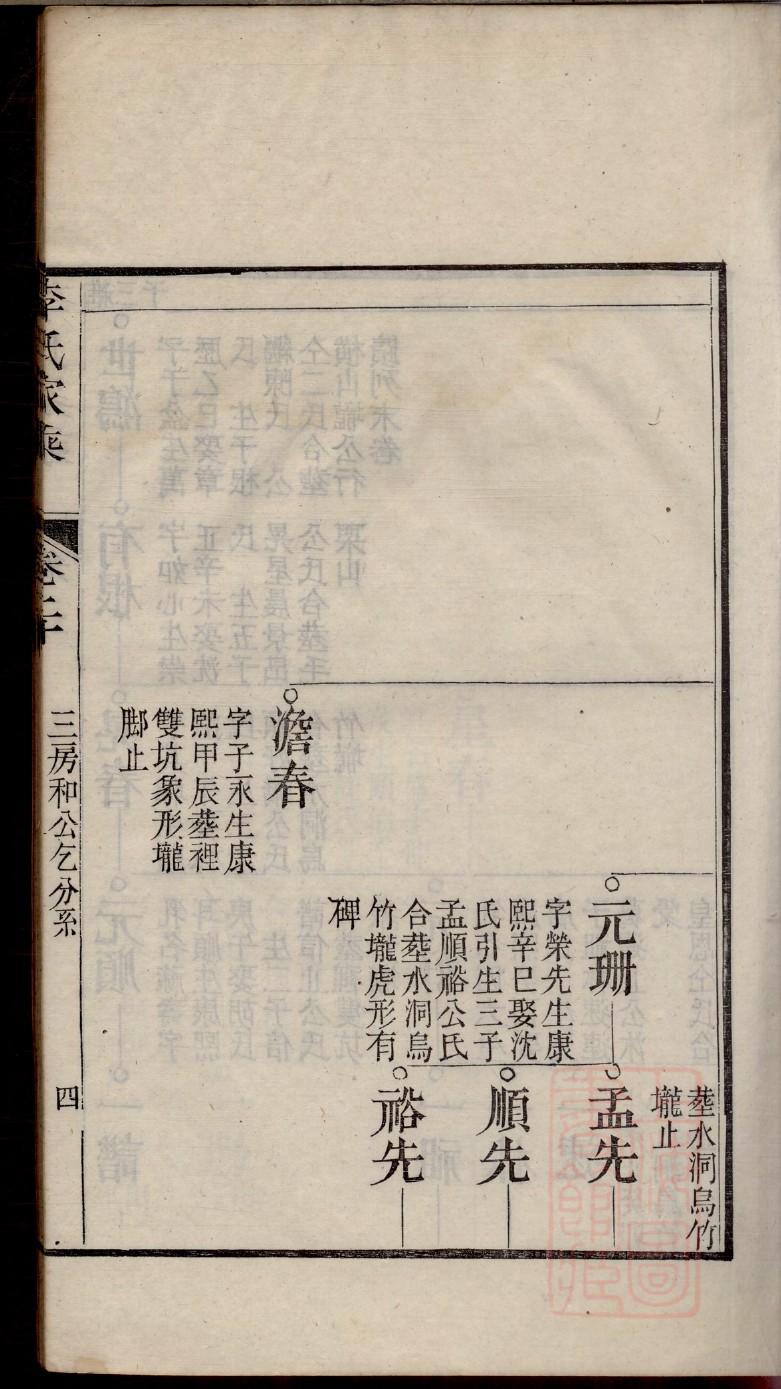 塟水洞烏竹
壠止
元珊
字榮先生康
熙辛巳娶沈
氏引生三子
孟順裕公氏
合塟水洞烏
竹壠虎形有
碑
孟先
順先
裕先
澹春
字子永生康
熙甲辰塟裡
雙坑象形壠
脚止
李氏家乘
卷二十
三房和公乞分系
四